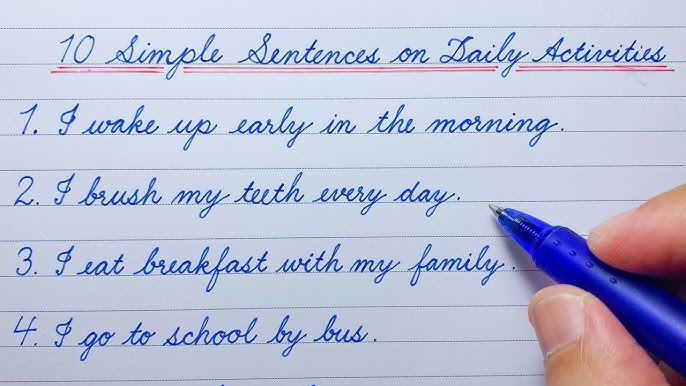 10 Simple Sentences on Daily Activities
1. I wake up early in the morning.
2. I brush my teeth every day.
3. I eat breakfast with my family.
4. I go to school by bus.